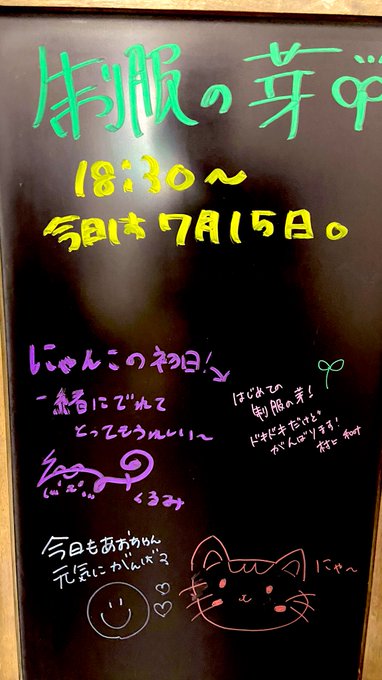 制服の芽
18:30～
今日は7月15日。
にゃんこの初日!
一緒にでれて
とってもうれしい～
くるみ
はじめての
制服の芽!
ドキドキだけど
がんばります!
村上 和叶
今日もあおちゃん
元気にがんばる
にゃ～